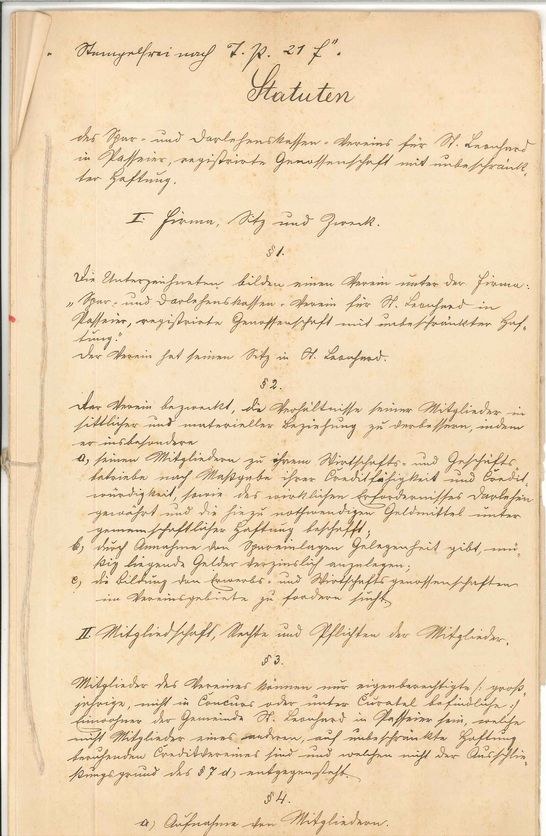 Stempelfrei nach T. P. 21 f".
Statuten
des Spar- und Darlehenskassen-Vereines für St. Leonhard
in Passeier, registrirte Genossenschaft mit unbeschränk-
ter Haftung.
I. Firma, Sitz und Zweck.
§ 1.
Die Unterzeichneten bilden einen Verein unter der Firma:
„Spar- und Darlehenskassen-Verein für St. Leonhard in
Passeier, registrirte Genossenschaft mit unbeschränkter Haf-
tung."
Der Verein hat seinen Sitz in St. Leonhard.
§ 2.
Der Verein bezweckt, die Verhältnisse seiner Mitglieder in
sittlicher und materieller Beziehung zu verbessern, indem
er insbesondere
a, seinen Mitgliedern zu ihrem Wirtschafts- und Geschäfts-
betriebe nach Maßgabe ihrer Creditfähigkeit und Credit-
würdigkeit, sowie des wirklichen Erfordernisses Darlehen
gewährt und die hiezu nothwendigen Geldmittel unter
gemeinschaftlicher Haftung beschafft;
b, durch Annahme von Spareinlagen Gelegenheit gibt, mü-
ßig liegende Gelder verzinslich anzulegen;
c, die Bildung von Erwerbs- und Wirtschaftsgenossenschaften
im Vereinsgebiete zu fördern sucht.
II. Mitgliedschaft, Rechte und Pflichten der Mitglieder.
§ 3.
Mitglieder des Vereines können nur eigenberechtigte /: groß-
jährige, nicht in Concurs oder unter Curatel befindliche :/
Einwohner der Gemeinde St. Leonhard in Passeier sein, welche
nicht Mitglieder eines anderen, auf unbeschränkte Haftung
beruhenden Creditvereines sind und welchen nicht der Ausschlie-
ßungsgrund des § 7 d, entgegensteht.
§ 4.
a) Aufnahme von Mitgliedern.